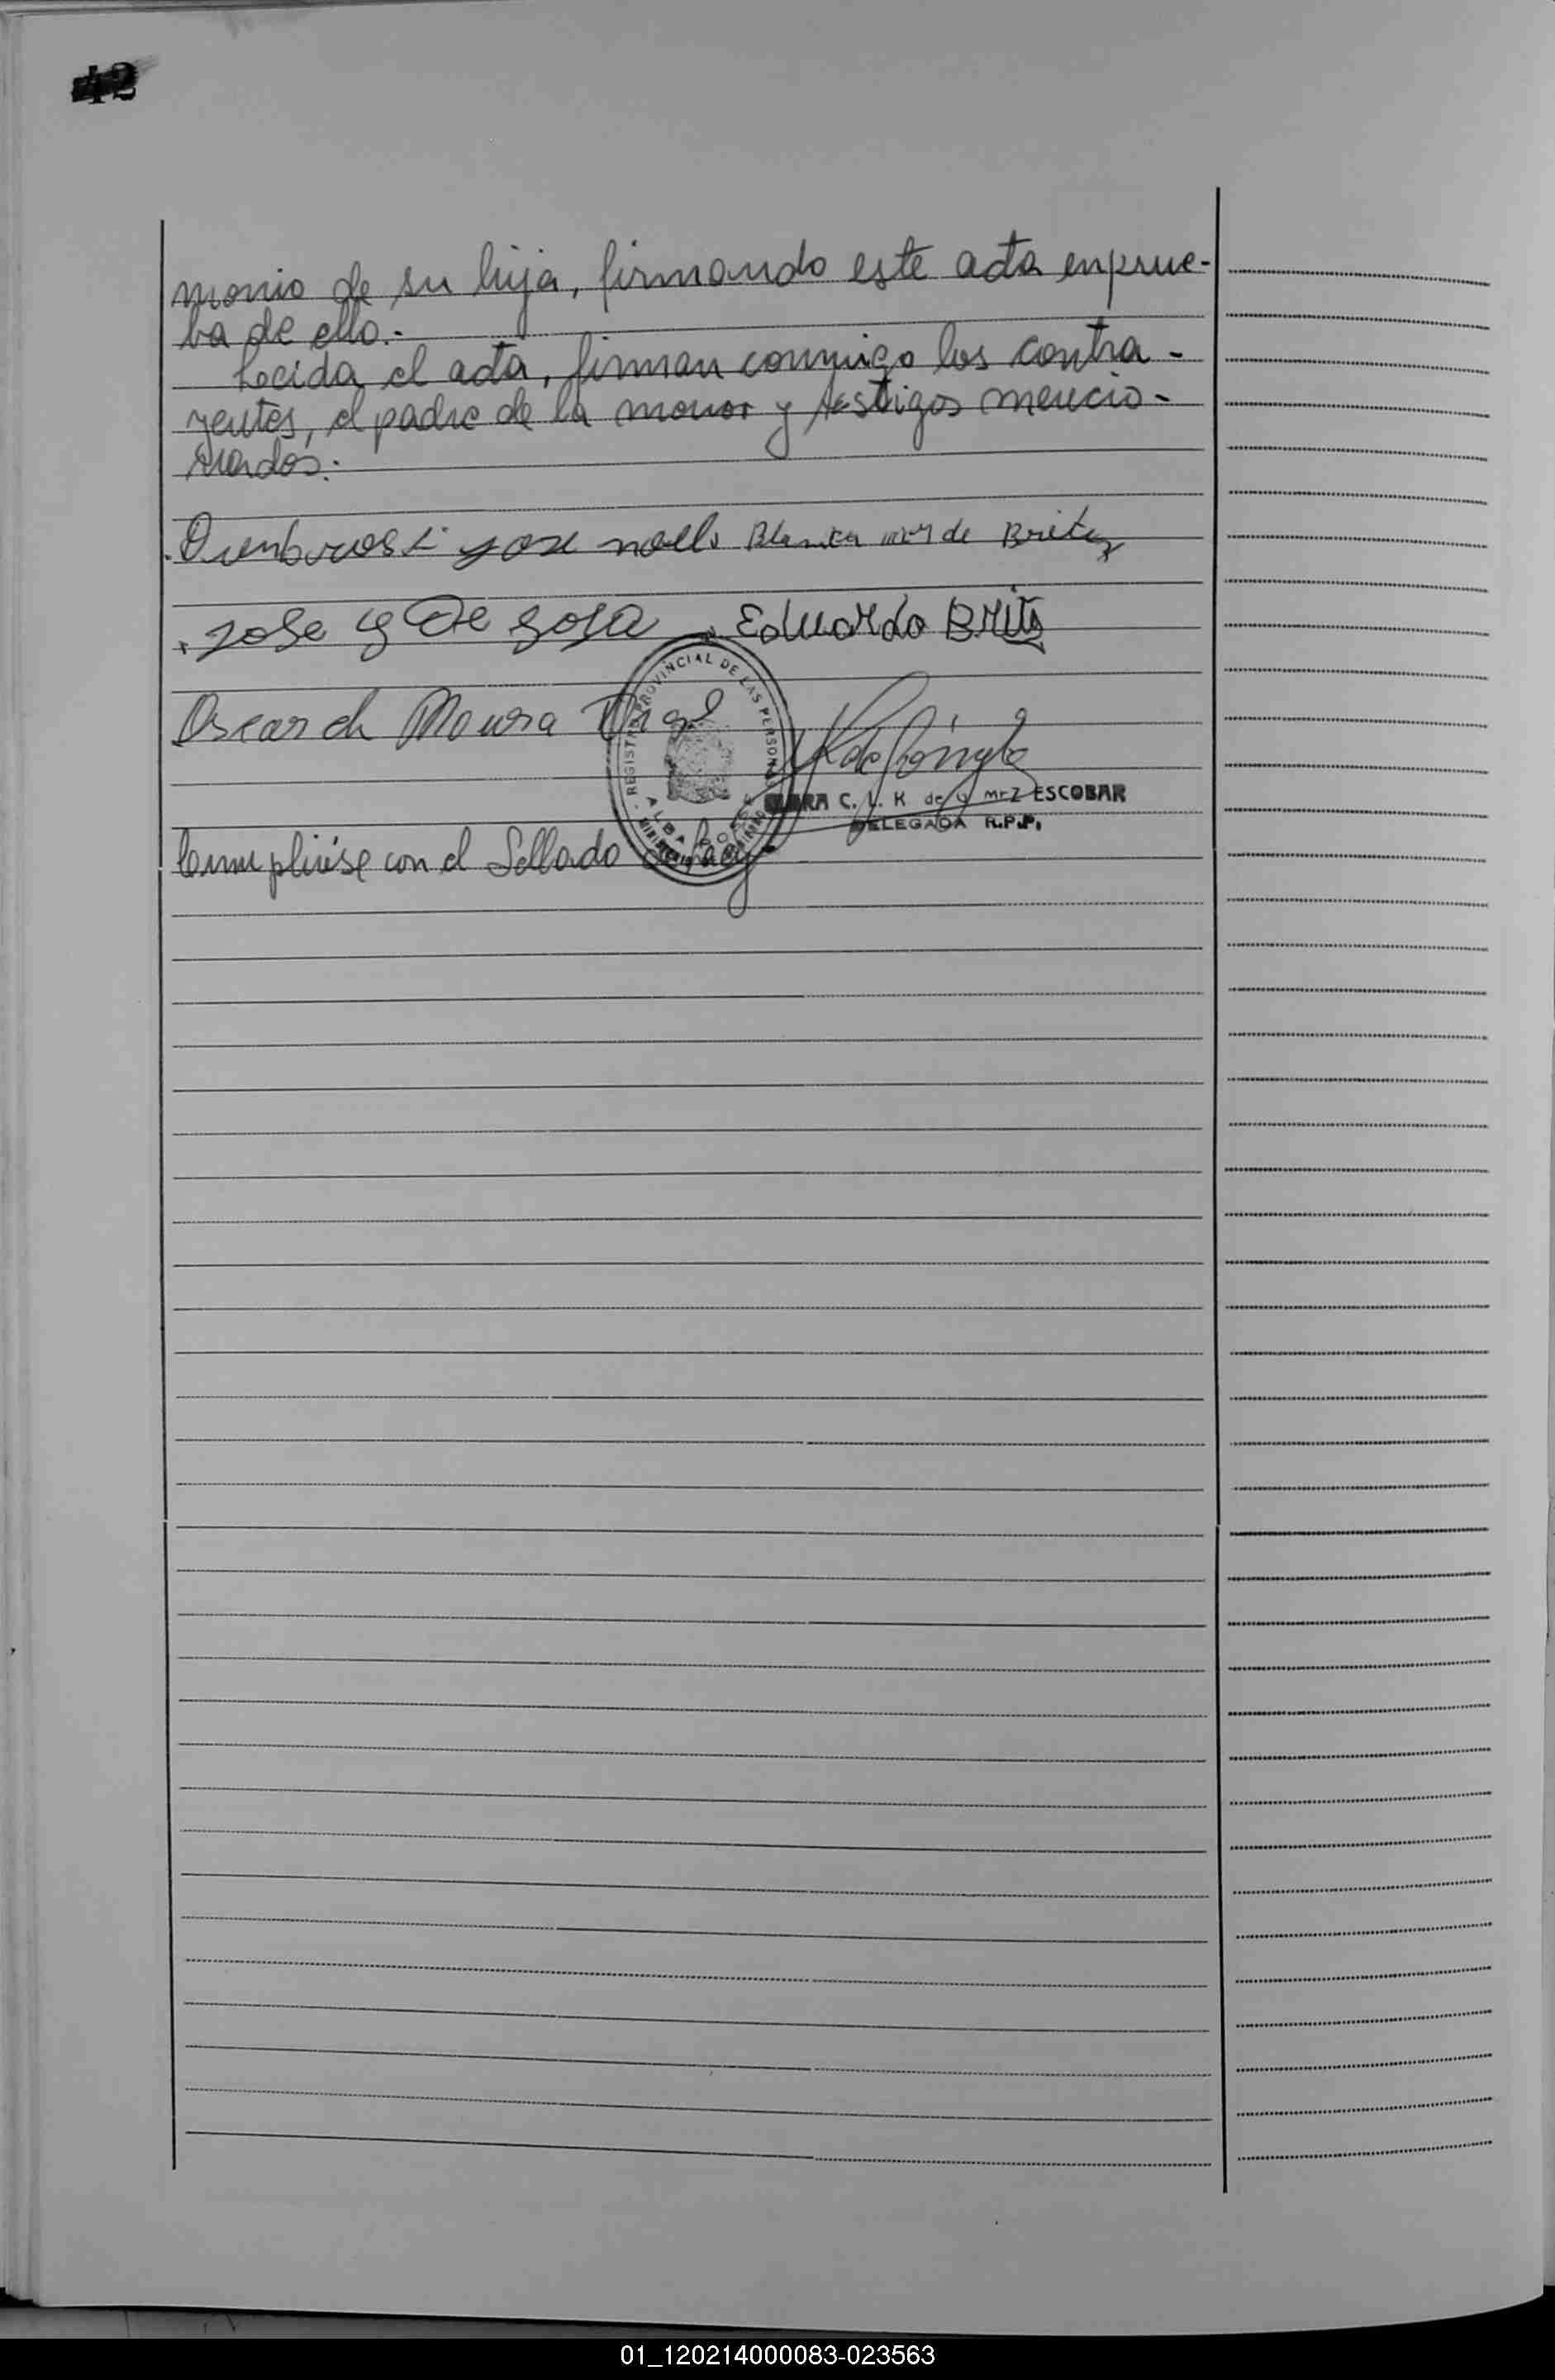 42
monio de su hija, firmando este acta en prue-
ba de ello.-
Leída el acta, firman conmigo los contra-
yentes, el padre de la menor y testigos mencio-
nados.-
jose Blanca de Britez
jose de sosa Eduardo Britz
Oscar Moura
REGISTRO PROVINCIAL DE LAS PERSONAS
ALBA POSSE
C. L. K de G mez ESCOBAR
DELEGADA R.P.P.
Cumplióse con el Sellado de Ley.-
01_120214000083-023563